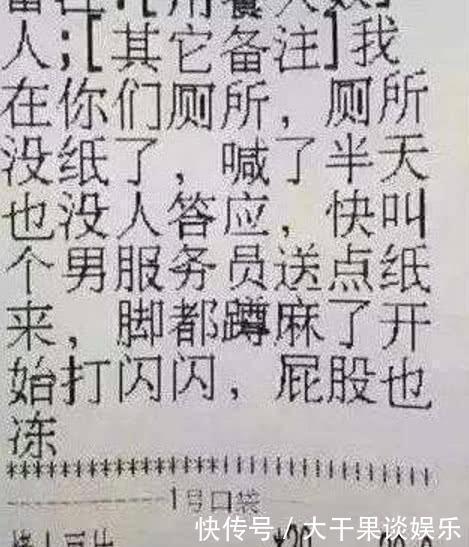 人;[其它备注]我
在你们厕所，厕所
没纸了，喊了半天
也没人答应，快叫
个男服务员送点纸
来，脚都蹲麻了开
始打闪闪，屁股也
冻
1号口袋
快传号/大干果谈娱乐